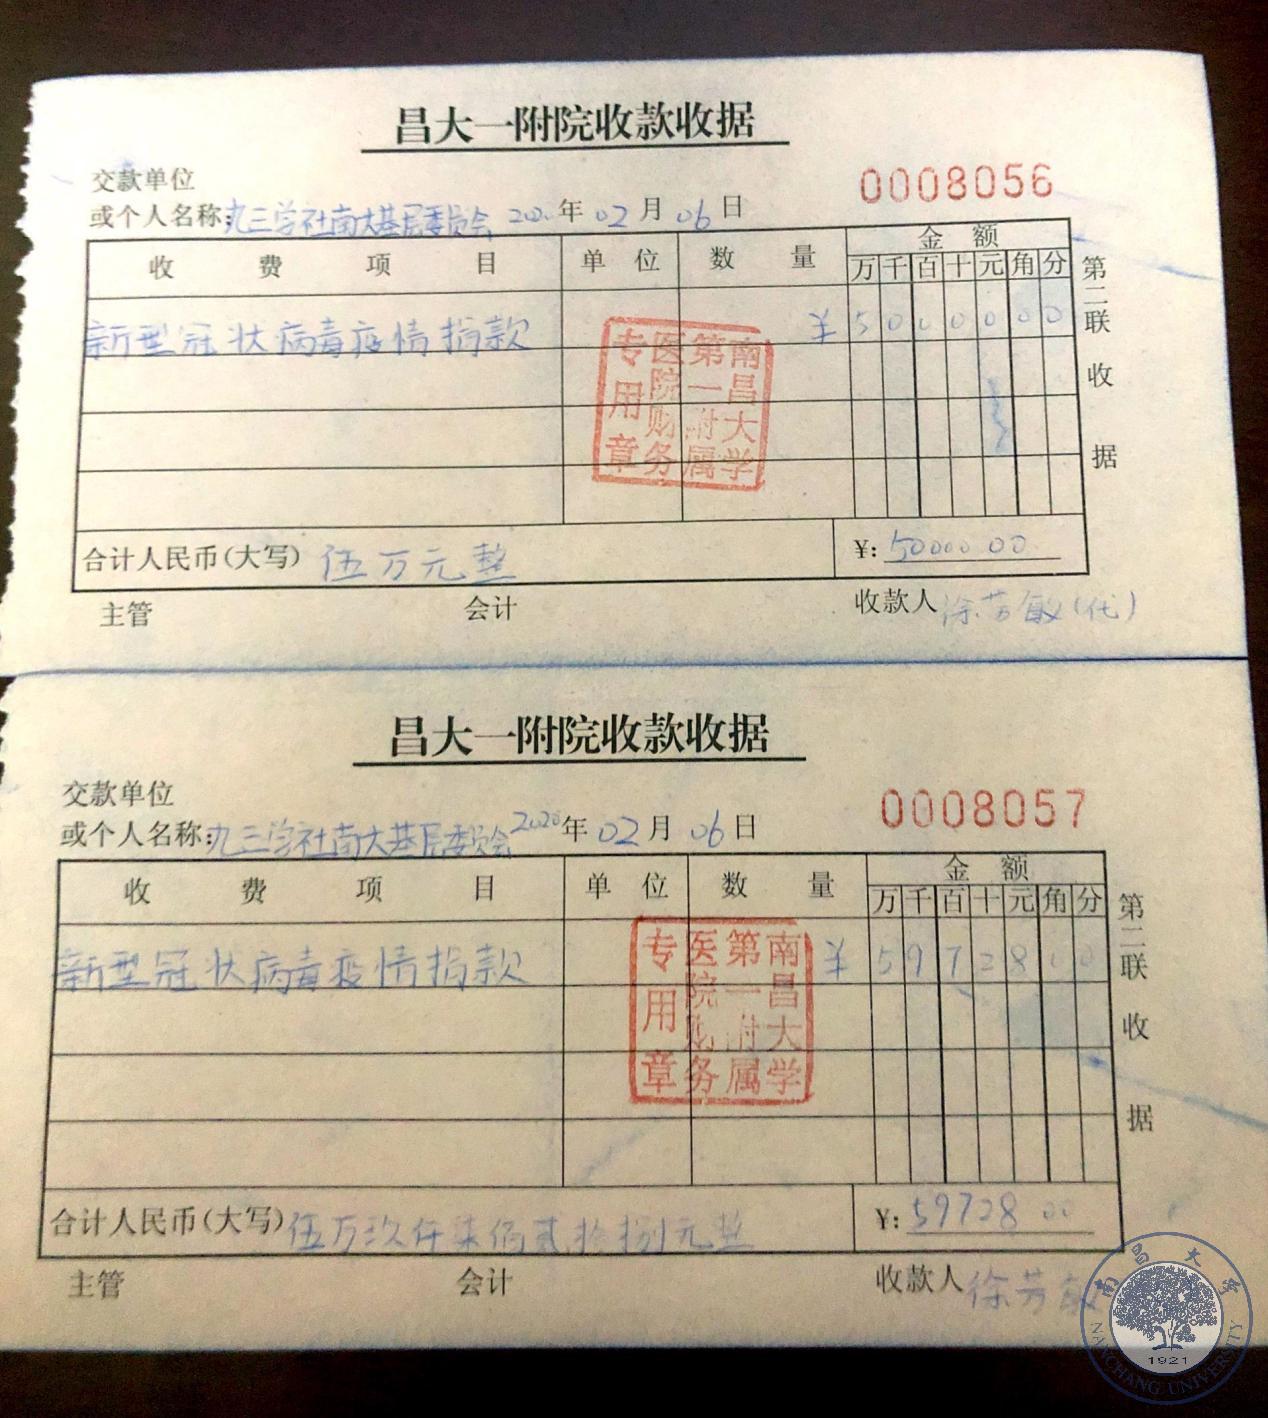 昌大一附院收款收据
交款单位
或个人名称:九三学社南大基层委员会 2020年02月06日
0008056
收费项目 单位 数量 金额
万千百十元角分
新型冠状病毒疫情捐款 ¥5000000
南昌大学
第一附属
医院财务
专用章
第二联 收据
合计人民币(大写) 伍万元整 ¥:50000.00
主管 会计 收款人 徐芳敏(代)
昌大一附院收款收据
交款单位
或个人名称:九三学社南大基层委员会 2020年02月06日
0008057
收费项目 单位 数量 金额
万千百十元角分
新型冠状病毒疫情捐款 ¥5972800
南昌大学
第一附属
医院财务
专用章
第二联 收据
合计人民币(大写) 伍万玖仟柒佰贰拾捌元整 ¥:59728.00
主管 会计 收款人 徐芳敏
南昌大学
NANCHANG UNIVERSITY
1921